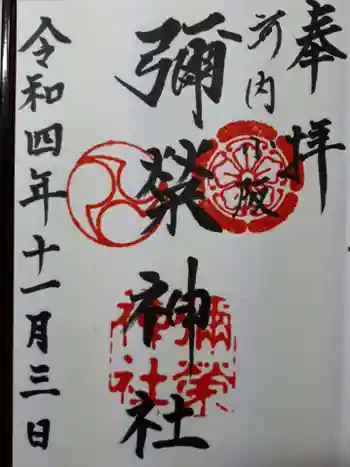 奉拝
河内
小阪
彌榮神社
彌榮
神社
令和四年十一月三日